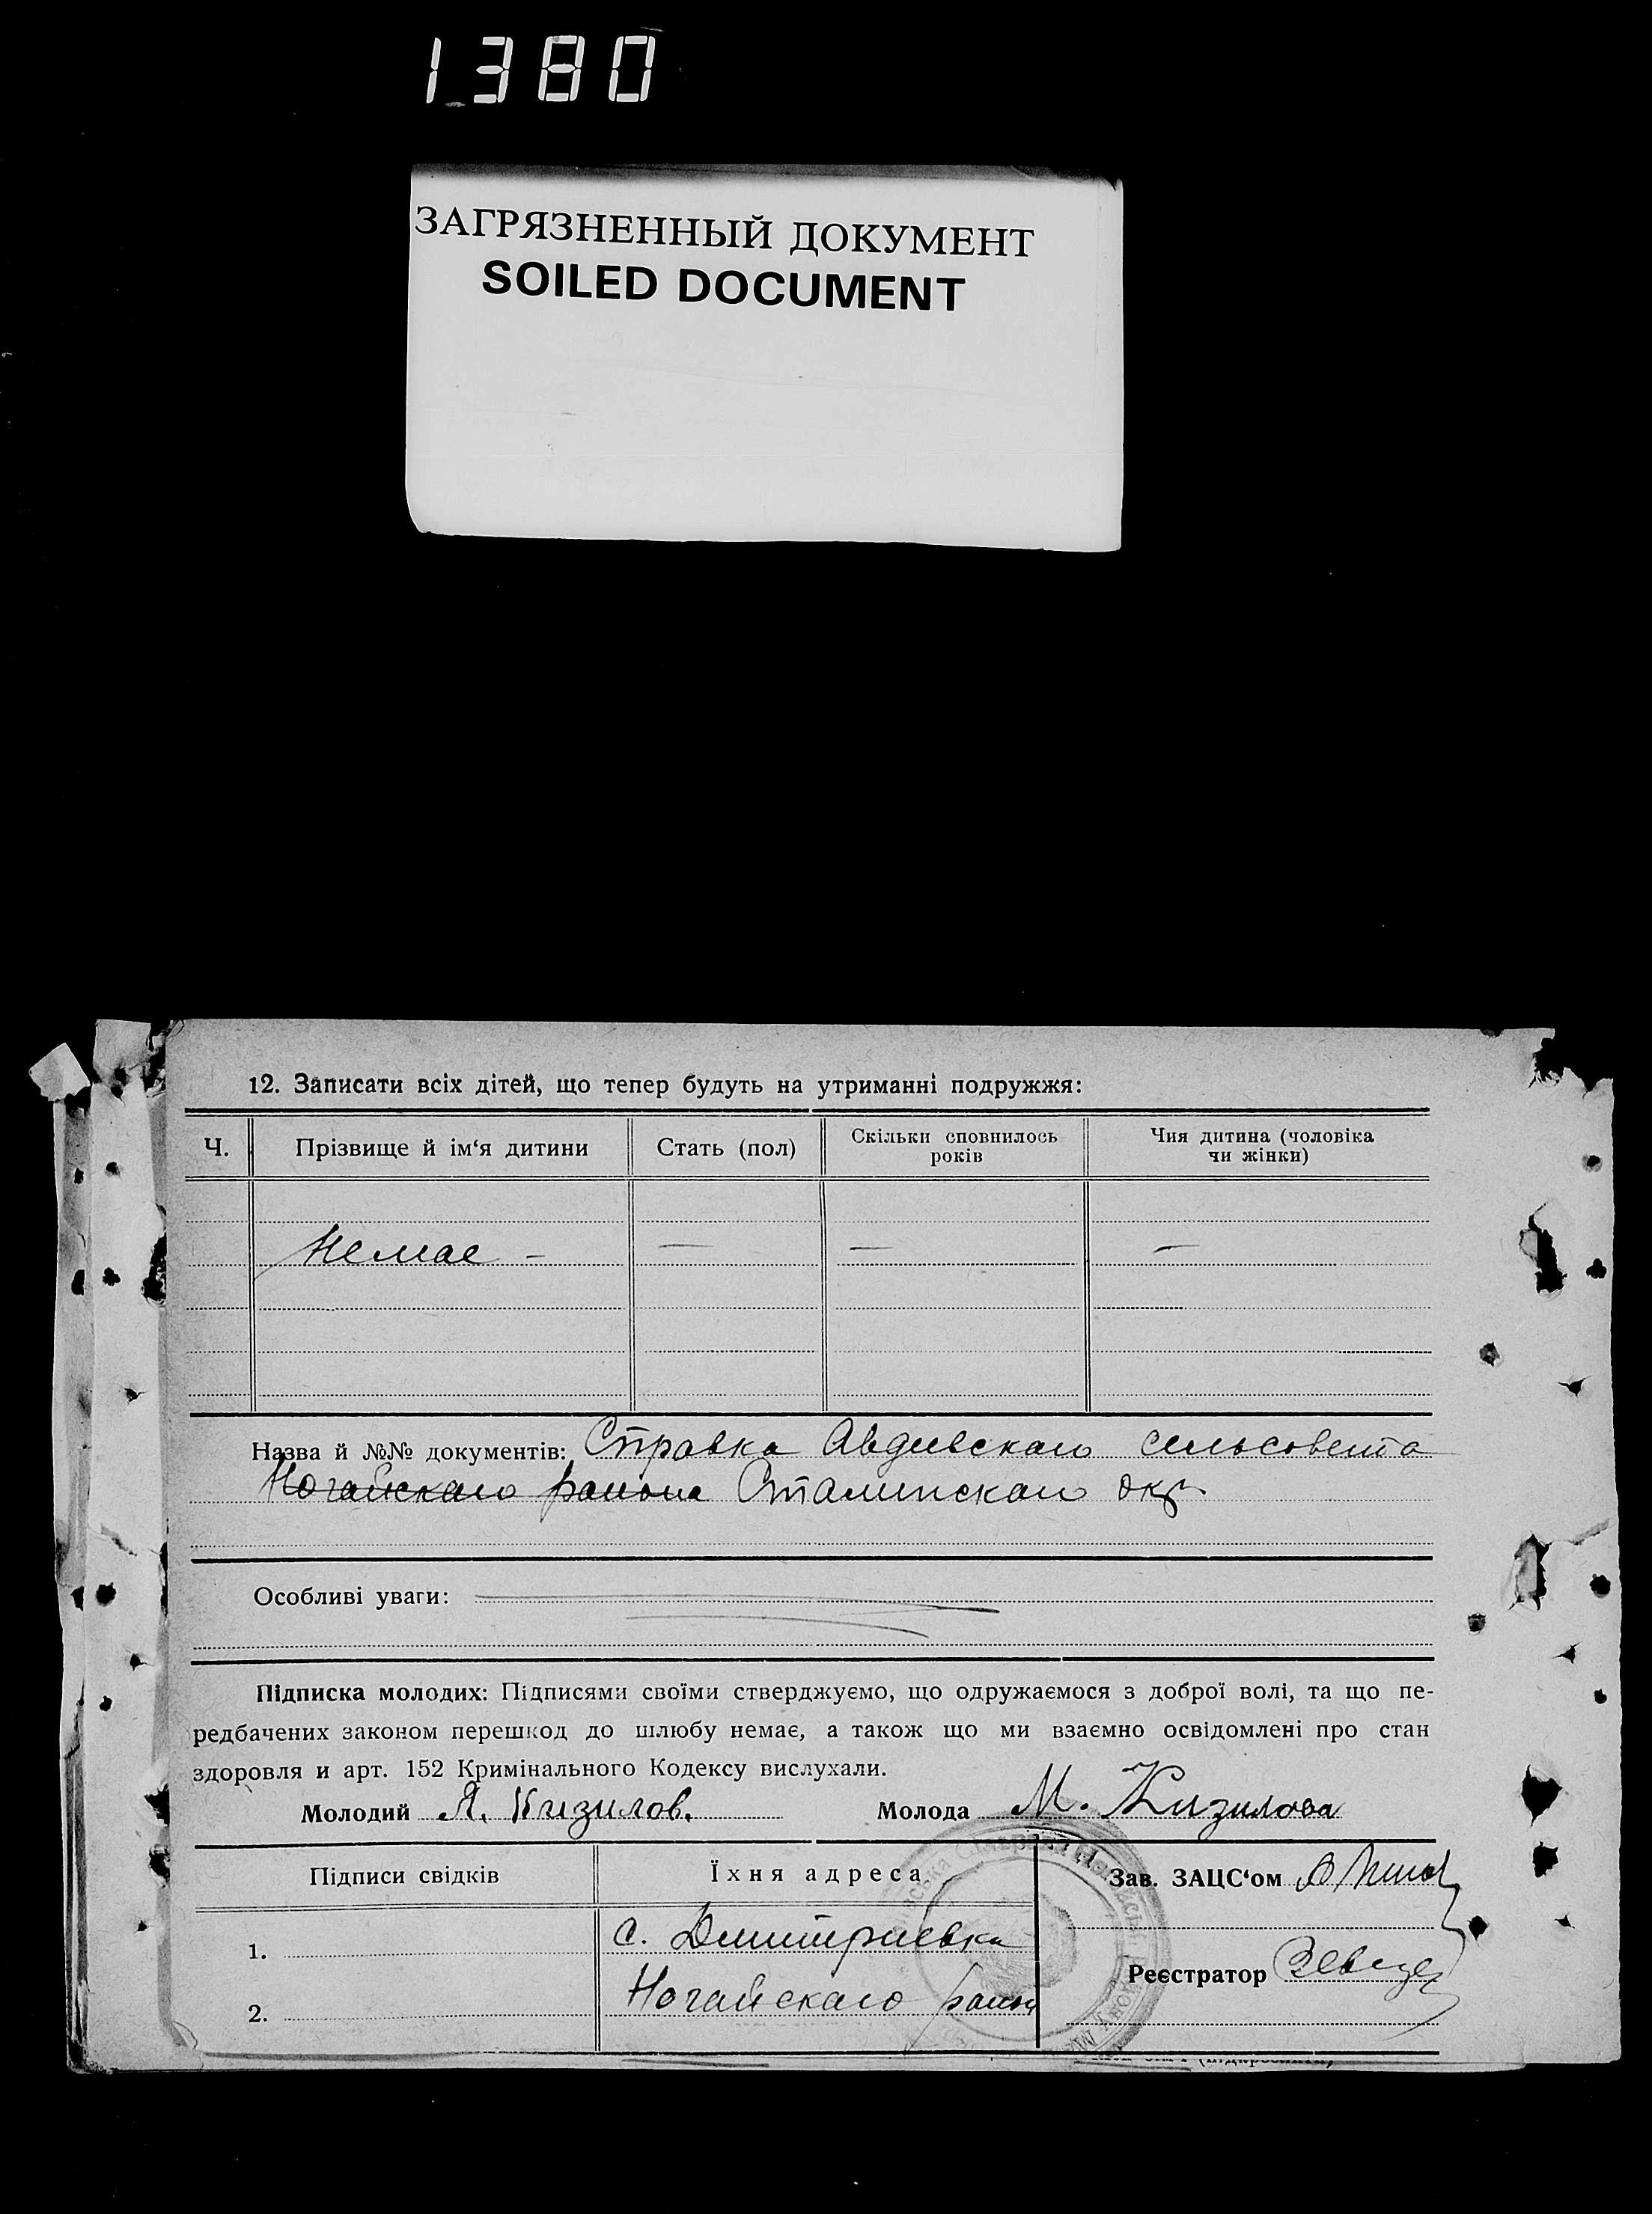 1380
ЗАГРЯЗНЕННЫЙ ДОКУМЕНТ
SOILED DOCUMENT
12. Записати всіх дітей, що тепер будуть на утриманні подружжя:
Ч. Прізвище й ім‘я дитини Стать (пол) Скільки сповнилось років Чия дитина (чоловіка чи жінки)
Немае – — — —
Назва й №№ документів: Справка Авдеевскаго сельсовета
Ногайскаго района Сталинскаго окр.
Особливі уваги:
Підписка молодих: Підписями своїми стверджуємо, що одружаємося з доброї волі, та що пе-
редбачених законом перешкод до шлюбу немає, а також що ми взаємно освідомлені про стан
здоровля и арт. 152 Кримінального Кодексу вислухали.
Молодий Я. Кизилов. Молода М. Кизилова
Підписи свідків Їхня адреса Зав. ЗАЦС‘ом
1. с. Дмитриевка
Реєстратор
2. Ногайскаго район